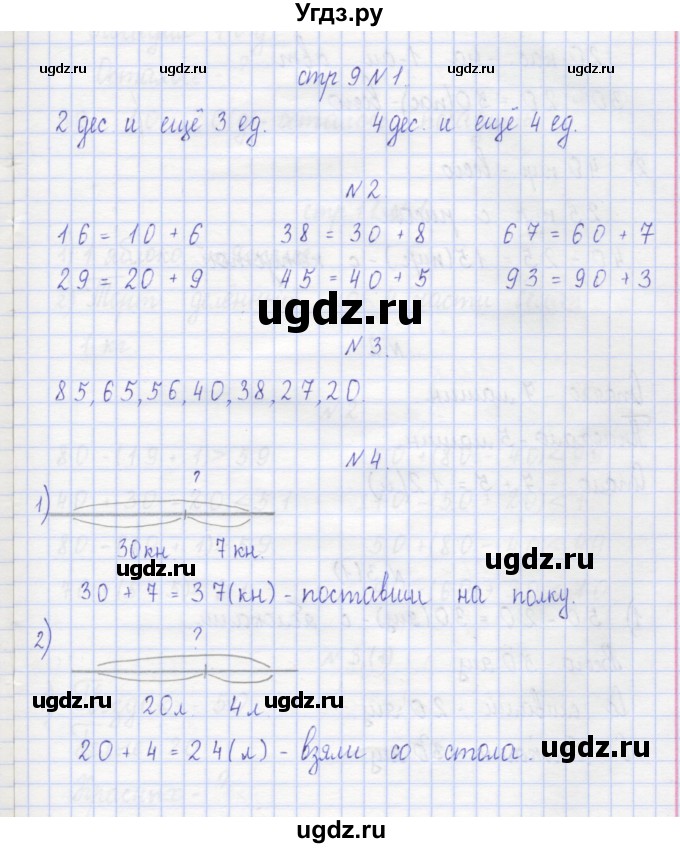 Угдз.ру
ugdz.ru ugdz.ru ugdz.ru ugdz.ru
стр 9 N 1.
2 дес и ещё 3 ед. 4 дес. и ещё 4 ед.
N 2.
16 = 10 + 6 38 = 30 + 8 67 = 60 + 7
29 = 20 + 9 45 = 40 + 5 93 = 90 + 3
ugdz.ru
N 3.
85, 65, 56, 40, 38, 27, 20.
N 4.
?
1)
30 кн 7 кн.
ugdz.ru
ugdz.ru
30 + 7 = 37 (кн) - поставили на полку.
2) ?
ugdz.ru ugdz.ru
20 л. 4 л
20 + 4 = 24 (л) - взяли со стола.
ugdz.ru
ugdz.ru
ugdz.ru